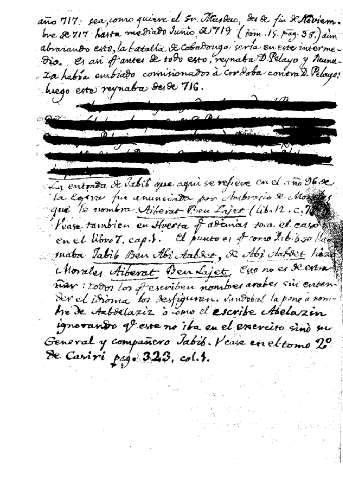 año 717: sea, como quiere el Sr. Masdeu, desde fin de Noviem-
bre de 717 hasta mediado Junio de 1719 (tom. 15. pag. 38.) aun
abraviando esto, la batalla de Cobadonga seria en este interme-
dio. Es asi q.e antes de todo esto, reynaba D. Pelayo y Munu-
za habia embiado comisionados à Cordoba contra D. Pelayo:
luego este reynaba desde 716.
La entrada de Tabib que aqui se refiere en el año 96 de
la Egira fue anunciada por Ambrosio de Morales
que le nombra Aiberat Ben Lajet (lib. 12. c.
Vease tambien en Huerta q.e ademas
en el libro 7. cap. 1. El punto es q.e como Tabib se lla-
maba Tabib Ben Abi Aabdet, de Abi Aabdet
Morales Aiberat Ben Lajet. Eso no es de extra-
ñar: todos los q.e escriben nombres arabes sin enten-
der el idioma los desfiguran. Sandobal la pone a nom-
bre de Aabdelaziz ò como el escribe Abelazin
ignorando q.e este no iba en el exercito sinó su
General y compañero Tabib. Vease en el tomo 2º
de Casiri pag. 323, col. 1.